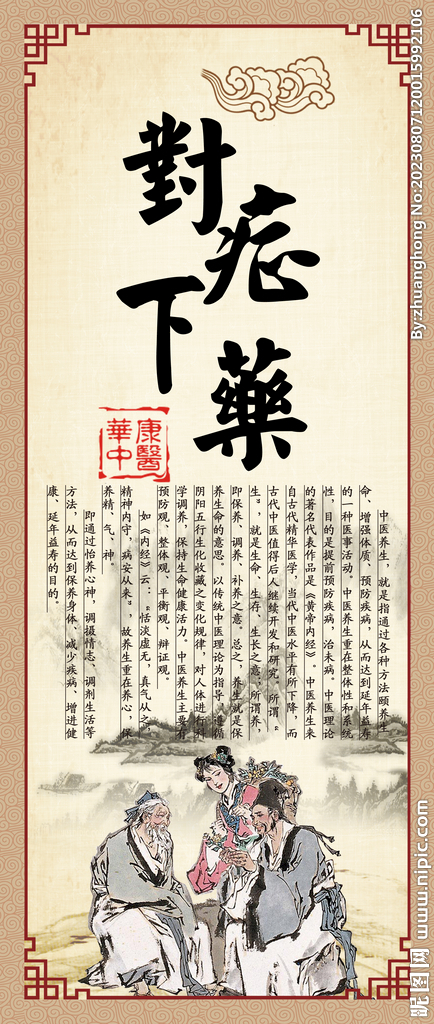 對症
下藥
康醫
華中
中医养生，就是指通过各种方法颐养生
命、增强体质、预防疾病，从而达到延年益寿
的一种医事活动。中医养生重在整体性和系统
性，目的是提前预防疾病，治未病。中医理论
的著名代表作品是《黄帝内经》。中医养生来
自古代精华医学，当代中医水平有所下降，而
古代中医值得后人继续开发和研究。所谓“
生”，就是生命、生存、生长之意；所谓养，
即保养、调养、补养之意。总之，养生就是保
养生命的意思。以传统中医理论为指导，遵循
阴阳五行生化收藏之变化规律，对人体进行科
学调养，保持生命健康活力。中医养生主要有
预防观、整体观、平衡观、辩证观。
如《内经》云：“恬淡虚无，真气从之，
精神内守，病安从来”，故养生重在养心，保
养精、气、神。
即通过怡养心神，调摄情志、调剂生活等
方法，从而达到保养身体、减少疾病、增进健
康、延年益寿的目的。
By:zhuanghong No:20230807120015992106
昵图网 www.nipic.com